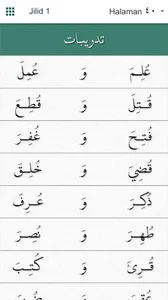 Jilid 1 Halaman ٤٠
تدريبات
عُلِمَ وَ عُمِلَ
قُتِلَ وَ قُطِعَ
فُتِحَ وَ غُفِرَ
قُضِيَ وَ خُلِقَ
ذُكِرَ وَ عُرِفَ
ظُهِرَ وَ نُصِرَ
قُرِئَ وَ كُتِبَ